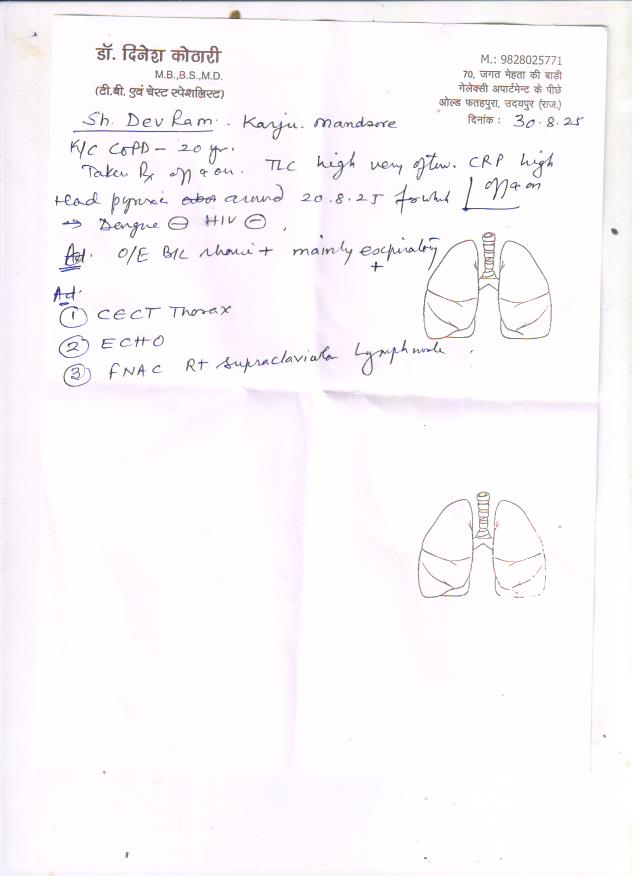 डॉ. दिनेश कोठारी
M.B.,B.S.,M.D.
(टी.बी. एवं चेस्ट स्पेशलिस्ट)
M.: 9828025771
70, जगत मेहता की बाड़ी
गेलेक्सी अपार्टमेन्ट के पीछे
ओल्ड फतहपुरा, उदयपुर (राज.)
दिनांक : 30.8.25
Sh. Dev Ram. Karju. Mandsore
K/C COPD - 20 yr.
Taken Rx off & on. TLC high very often. CRP high
off & on
Had pyrexia around 20.8.25 for which
→ Dengue ⊖ HIV ⊖,
Ad. O/E B/L rhonchi + mainly expiratory
+
Ad.
① CECT Thorax
② ECHO
③ FNAC Rt supraclavicular Lymphnode.